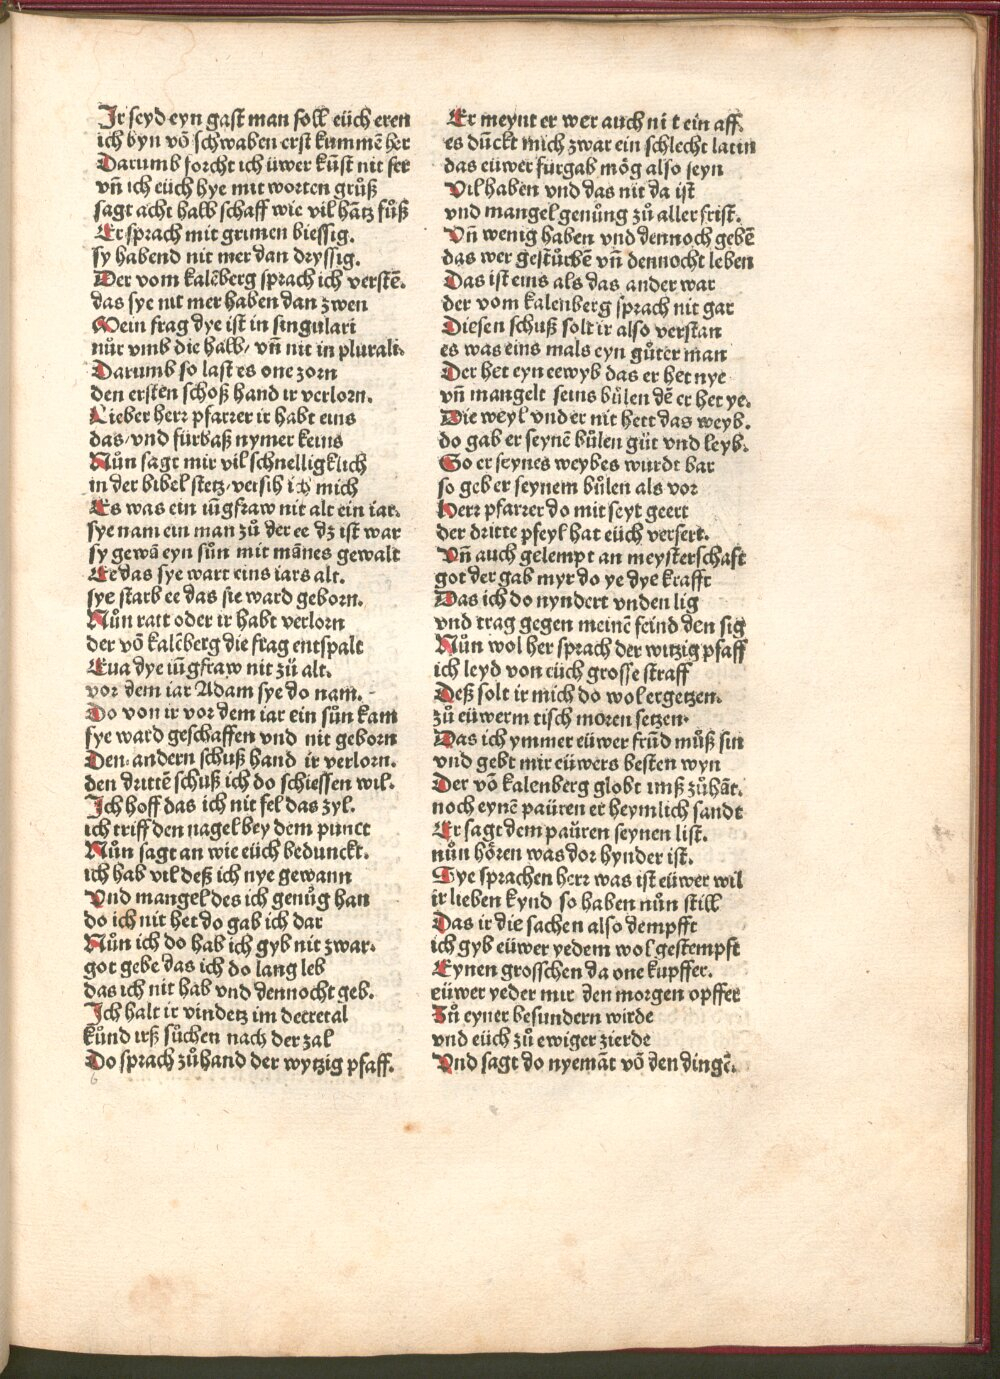 Ir seyd eyn gast man soll eüch eren
ich byn vō schwaben erst kummē her
Darumb forcht ich üwer kūst nit ser
vñ ich eüch hye mit worten grüß
sagt acht halb schaff wie vil hātz füß
Er sprach mit grimen biessig.
sy habend nit mer dan dryssig.
Der vom kalēberg sprach ich verstē.
das sye nit mer haben dan zwen
Mein frag dye ist in singulari
nůr vmb die halb/ vñ nit in plurali.
Darumb so last es one zorn
den ersten schoß hand ir verlorn.
Lieber herr pfarrer ir habt eins
das/vnd fürbaß nymer keins
Nůn sagt mir vil schnelligklich
in der bibel stetz/versih ich mich
Es was ein iūgfraw nit alt ein iar.
sye nam ein man zů der ee dz ist war
sy gewā eyn sůn mit mānes gewalt
Ee das sye wart eins iars alt.
sye starb ee das sie ward geborn.
Nůn ratt oder ir habt verlorn
der vō kalēberg die frag entspalt
Eua dye iūgfraw nit zü alt.
vor dem iar Adam sye do nam.
Do von ir vor dem iar ein sůn kam
sye ward geschaffen vnd nit geborn
Den andern schuß hand ir verlorn.
den drittē schuß ich do schiessen wil.
Ich hoff das ich nit fel das zyl.
ich triff den nagel bey dem punct
Nůn sagt an wie eüch bedunckt.
ich hab vil deß ich nye gewann
Vnd mangel des ich genůg han
do ich nit het do gab ich dar
Nůn ich do hab ich gyb nit zwar.
got gebe das ich do lang leb
das ich nit hab vnd dennocht geb.
Ich halt ir vindetz im decretal
künd irß sůchen nach der zal
Do sprach zůhand der wytzig pfaff.
Er meynt er wer auch nit ein aff.
es dūckt mich zwar ein schlecht latin
das eüwer fürgab mög also seyn
Vil haben vnd das nit da ist
vnd mangel genůng zů aller frist.
Vñ wenig haben vnd dennoch gebē
das wer gestůrbē vñ dennocht leben
Das ist eins als das ander war
der vom kalenberg sprach nit gar
Diesen schuß solt ir also verstan
es was eins mals eyn gůter man
Der het eyn eewyb das er het nye
vñ mangelt seins bůlen dē er het ye.
Die weyl vnd er nit hett das weyb.
do gab er seynē bůlen güt vnd leyb.
So er seynes weybes wurdt bar
so geb er seynem bůlen als vor
Herr pfarrer do mit seyt geert
der dritte pfeyl hat eüch versert.
Vñ auch gelempt an meysterschaft
got der gab myr do ye dye krafft
Das ich do nyndert vnden lig
vnd trag gegen meinē feind den sig
Nůn wol her sprach der witzig pfaff
ich leyd von eüch grosse straff
Deß solt ir mich do wol ergetzen.
zů eüwerm tisch moren setzen.
Das ich ymmer eüwer frūd můß sin
vnd gebt mir eüwers besten wyn
Der vō kalenberg globt imß zůhāt.
noch eynē paüren er heymlich sandt
Er sagt dem paüren seynen list.
nůn hören was dor hynder ist.
Sye sprachen herr was ist eüwer wil
ir lieben kynd so haben nůn still
Das ir die sachen also dempfft
ich gyb eüwer yedem wol gestempft
Eynen grosschen da one kupffer.
eüwer yeder mir den morgen opffer
Zů eyner besundern wirde
vnd eüch zů ewiger zierde
Vnd sagt do nyemāt vō den dingē.